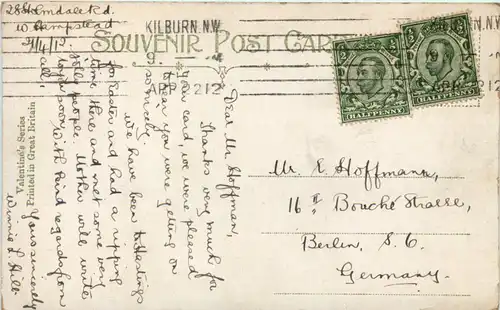 28 Holmdale Rd.
W. Hampstead
21/4/12.
KILBURN.N.W.
SOUVENIR POST CARD
HALFPENNY
HALFPENNY
Dear Mr Hoffman,
Thanks very much for
your card, we were pleased
to hear you were getting on
so nicely.
We have been to Hastings
for Easter and had a ripping
time there and met some very
jolly people. Mother will write
to you soon. With kind regards from
all,
Yours sincerely
Winnie L. Hill.
Valentine's Series
Printed in Great Britain
Mr. E. Hoffmann,
16 II Bouché Strasse,
Berlin, S. O.
Germany.